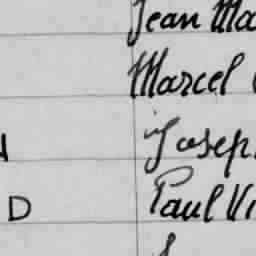 Jean Ma
Marcel
Josep
D Paul Vi